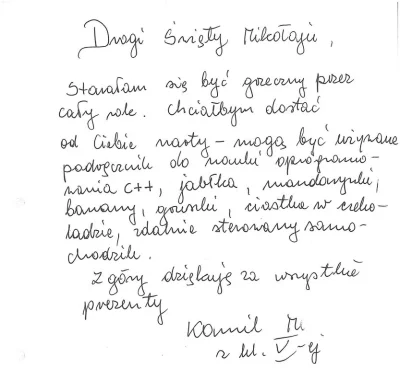 Drogi Święty Mikołaju,
Starałam się być grzeczny przez
cały rok. Chciałbym dostać
od Ciebie narty – mogą być używane
podręcznik do nauki oprogramo-
wania C++, jabłka, mandarynki,
banany, gruszki, ciastka w czeko-
ladzie, zdalnie sterowany samo-
chodzik.
Z góry dziękuję za wszystkie
prezenty
Kamil M
z kl. V-ej